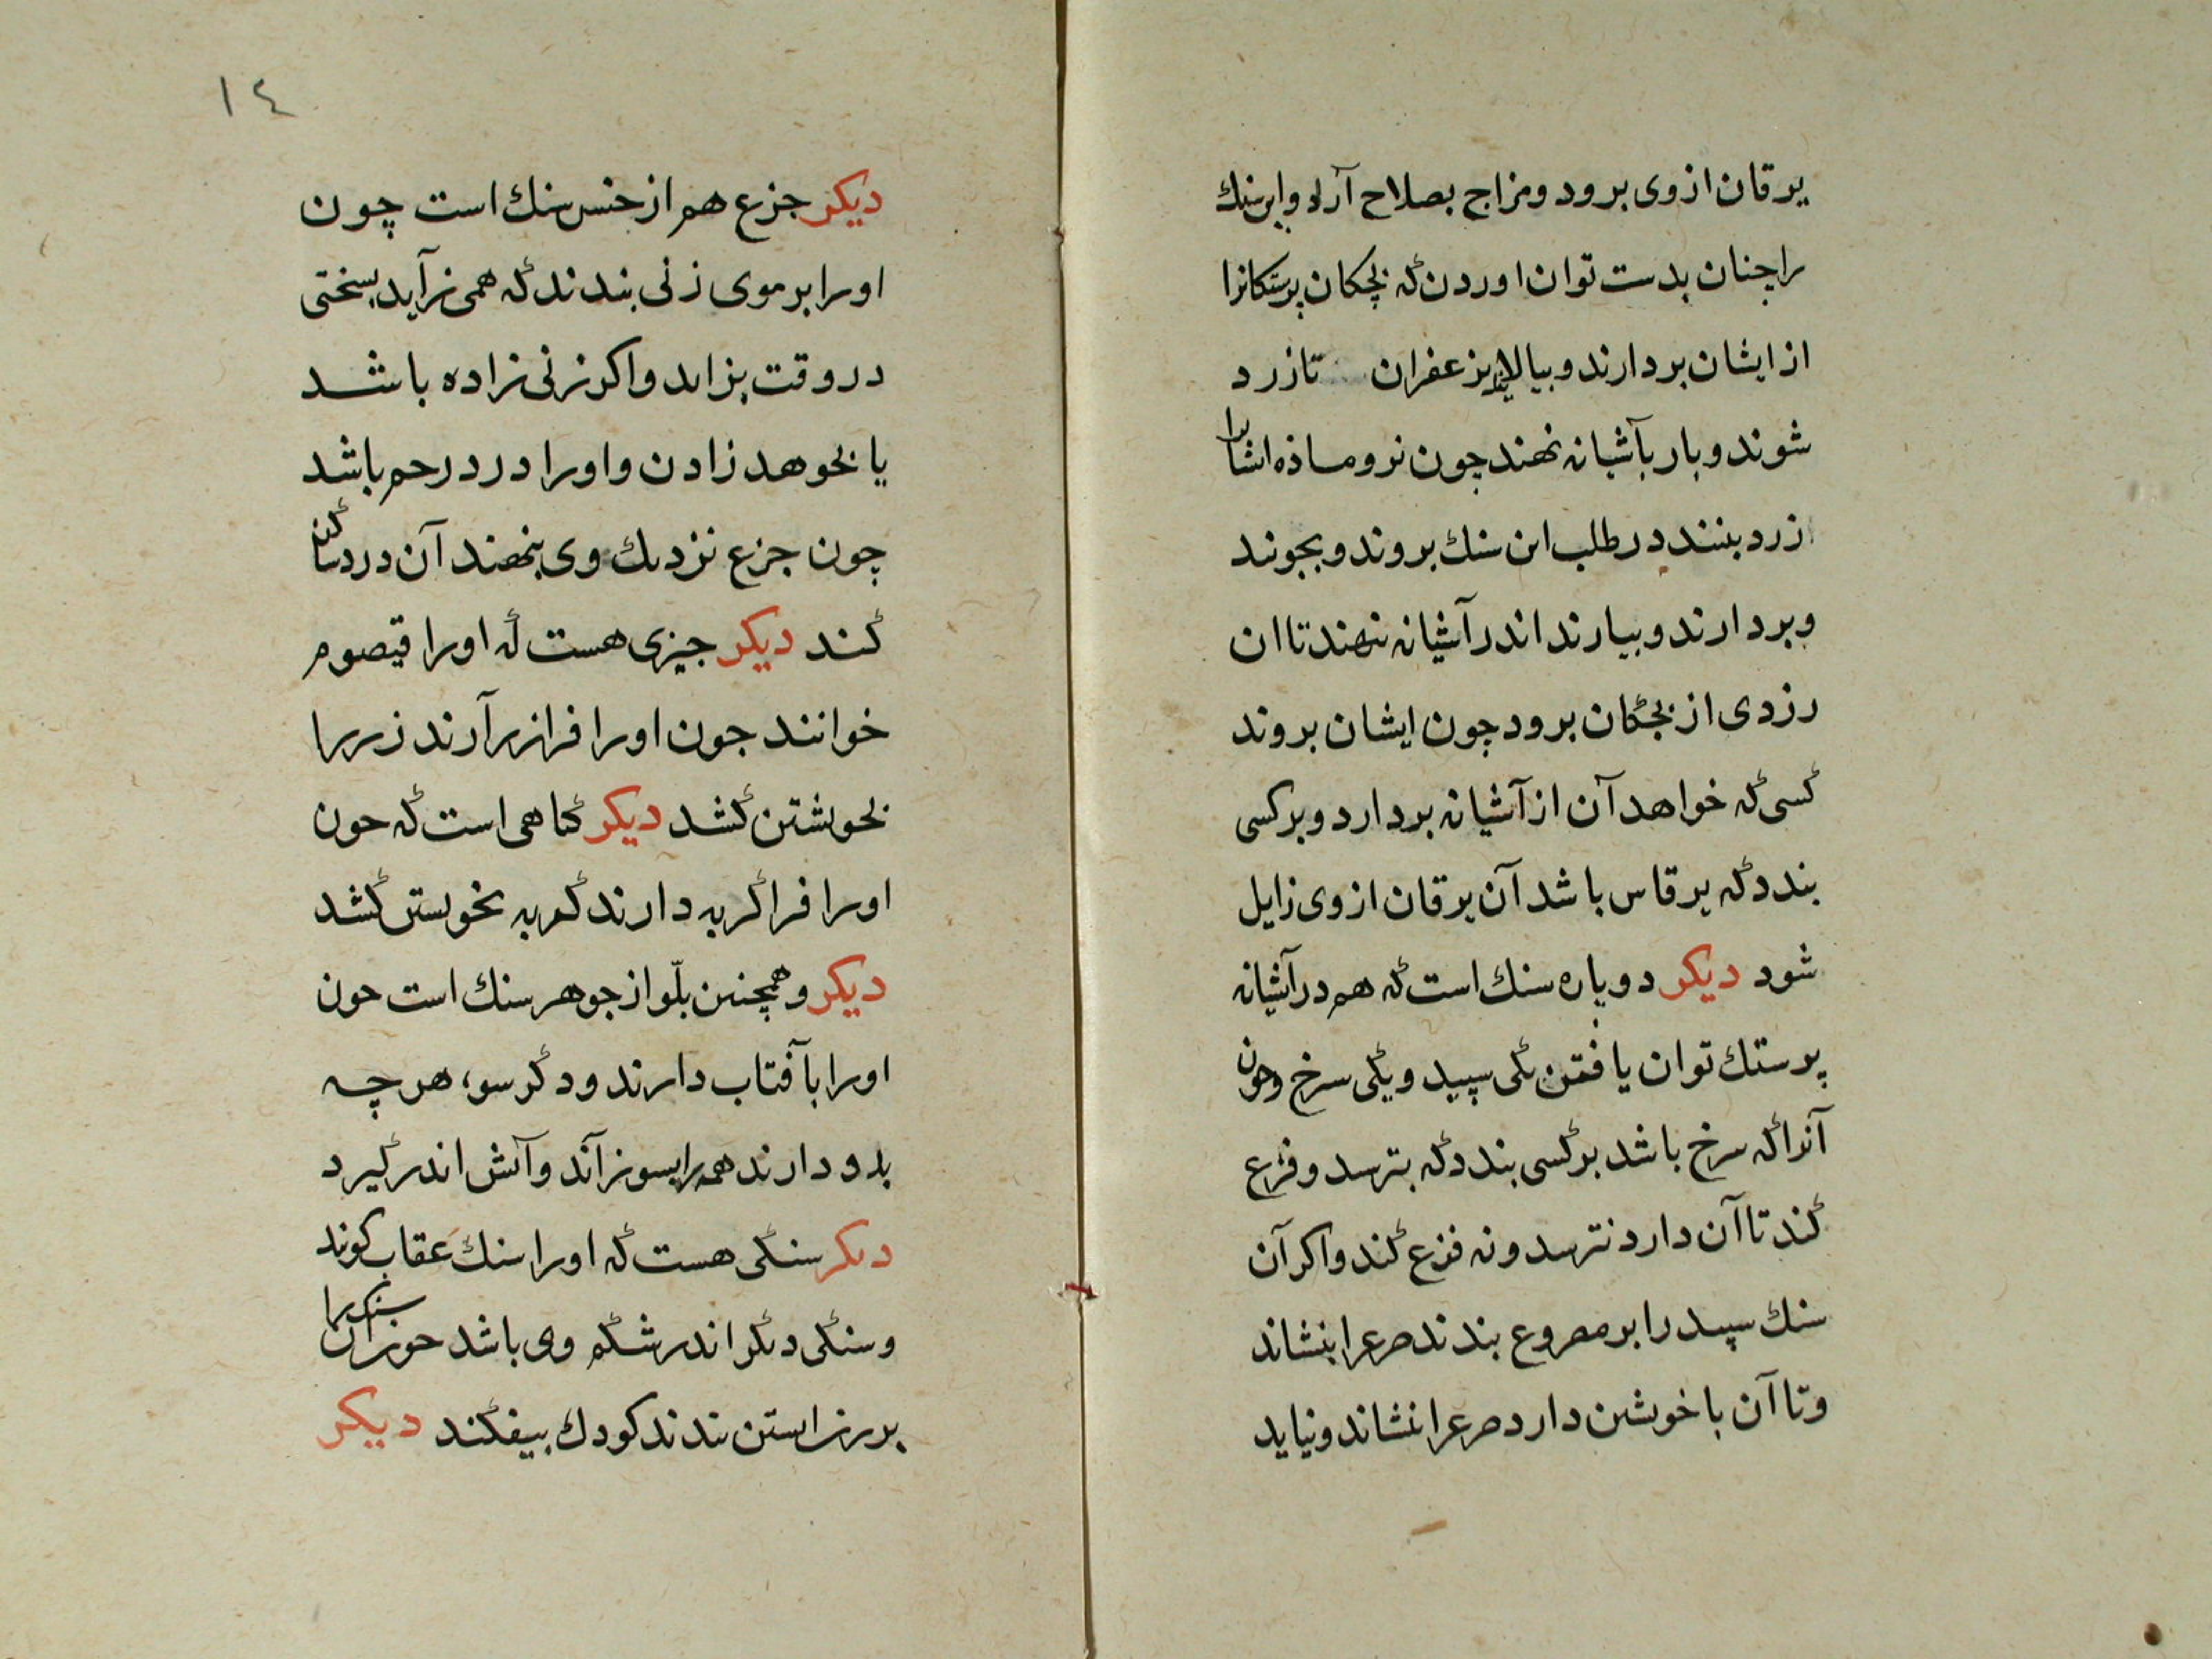 یرقان ازوی برود ومزاج بصلاح آرد واین سنك
راچنان بدست توان اوردن که بچکان پرستکانرا
ازایشان بردارند وبیالایند بزعفران تازرد
شوند وباز بآشیانه نهند چون نر وماذه ایشانرا
زرد بینند درطلب این سنك بروند وبجویند
وبردارند وبیارند اندر آشیانه ننهند تا ان
زردی از بچکان برود چون ایشان بروند
کسی که خواهد آن از آشیانه بردارد وبرکسی
بندد که یرقانش باشد آن یرقان ازوی زایل
شود دیکر دوپاره سنك است که هم درآشیانه
پرستك توان یافتن یکی سپید ویکی سرخ وچون
آنرا که سرخ باشد برکسی بندد که بترسد وفزع
کند تا آن دارد نترسد ونه فزع کند واکر آن
سنك سپید را بر مصروع بندند صرعرا بنشاند
وتا آن باخویشتن دارد صرعرا بنشاند ونیاید
١٤
دیکر جزع هم از جنس سنك است چون
اورا برموی زنی بندند که همی زاید بسختی
دروقت بزاید واکر زنی زاده باشد
یا بخوهد زادن واورا درد رحم باشد
چون جزع نزدیك وی بنهند آن درد ساکن
کند دیکر چیزی هست که اورا قیصوم
خوانند چون اورا فراز برآرند زررا
بخویشتن کشد دیکر کیاهی است که چون
اورا فرا کربه دارند کربه بخویشتن کشد
دیکر وهمچنین بلّور از جوهر سنك است چون
اورا بآفتاب دارند ودکر سوء هرچه
بدو دارند همه را بسوزاند وآتش اندر کیرد
دیکر سنکی هست که اورا سنك عقاب کویند
وسنکی دیکر اندر شکم وی باشد چون آن سنك را
برزن ابستن بندند کودك بیفکند دیکر